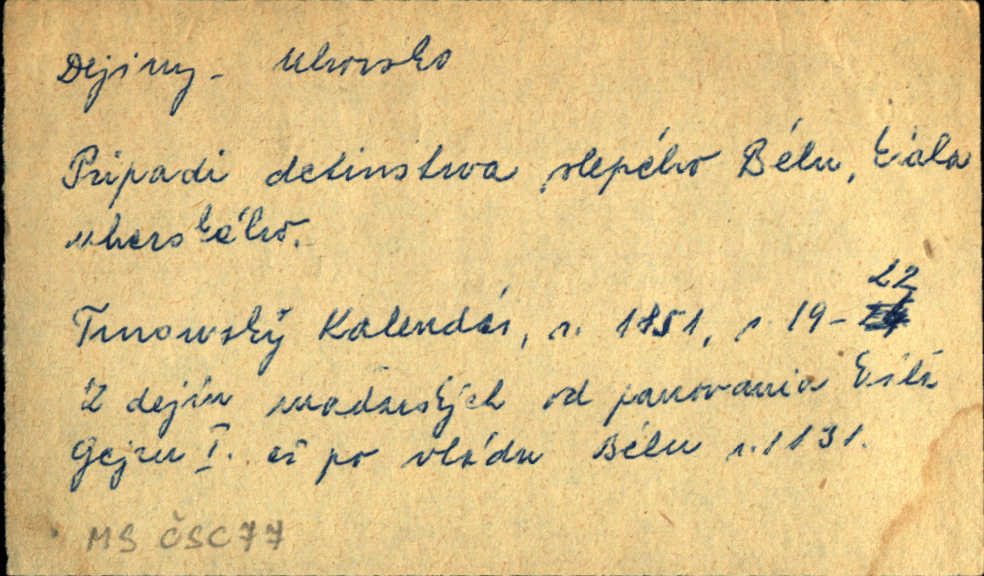 Dejiny - Uhorsko
Pripadi detinstwa slepého Bélu, krála
uherského.
Trnowský Kalendár, r. 1851, s. 19-22
Z dejín maďarských od panovania
Gejzu I. až po vládu Bélu r. 1131.
MS ČSČ77